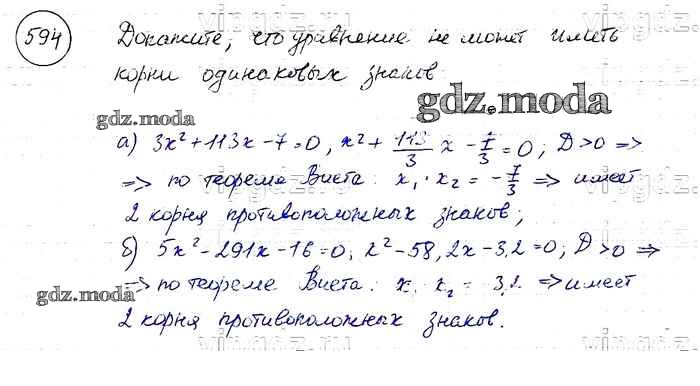 594 Докажите, что уравнение не может иметь
корни одинаковых знаков
gdz.moda
gdz.moda
а) 3x² + 113x - 7 = 0, x² + 113/3 x - 7/3 = 0; D > 0 =>
=> по теореме Виета: x₁ · x₂ = - 7/3 => имеет
2 корня противоположных знаков;
б) 5x² - 291x - 16 = 0; x² - 58,2x - 3,2 = 0; D > 0 =>
=> по теореме Виета: x₁ x₂ = 3,2 => имеет
gdz.moda
2 корня противоположных знаков.